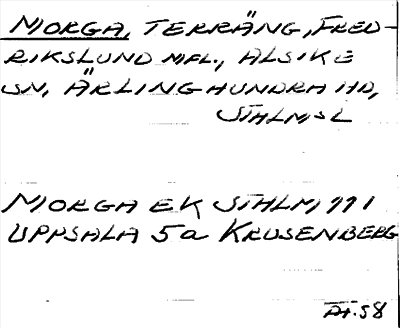 MORGA, TERRÄNG, FRED-
RIKSLUND MFL., ALSIKE
SN, ÄRLINGHUNDRA HD,
STHLMSL
MORGA EK STHLM 991
UPPSALA 5a KRUSENBERG
Pt. 58